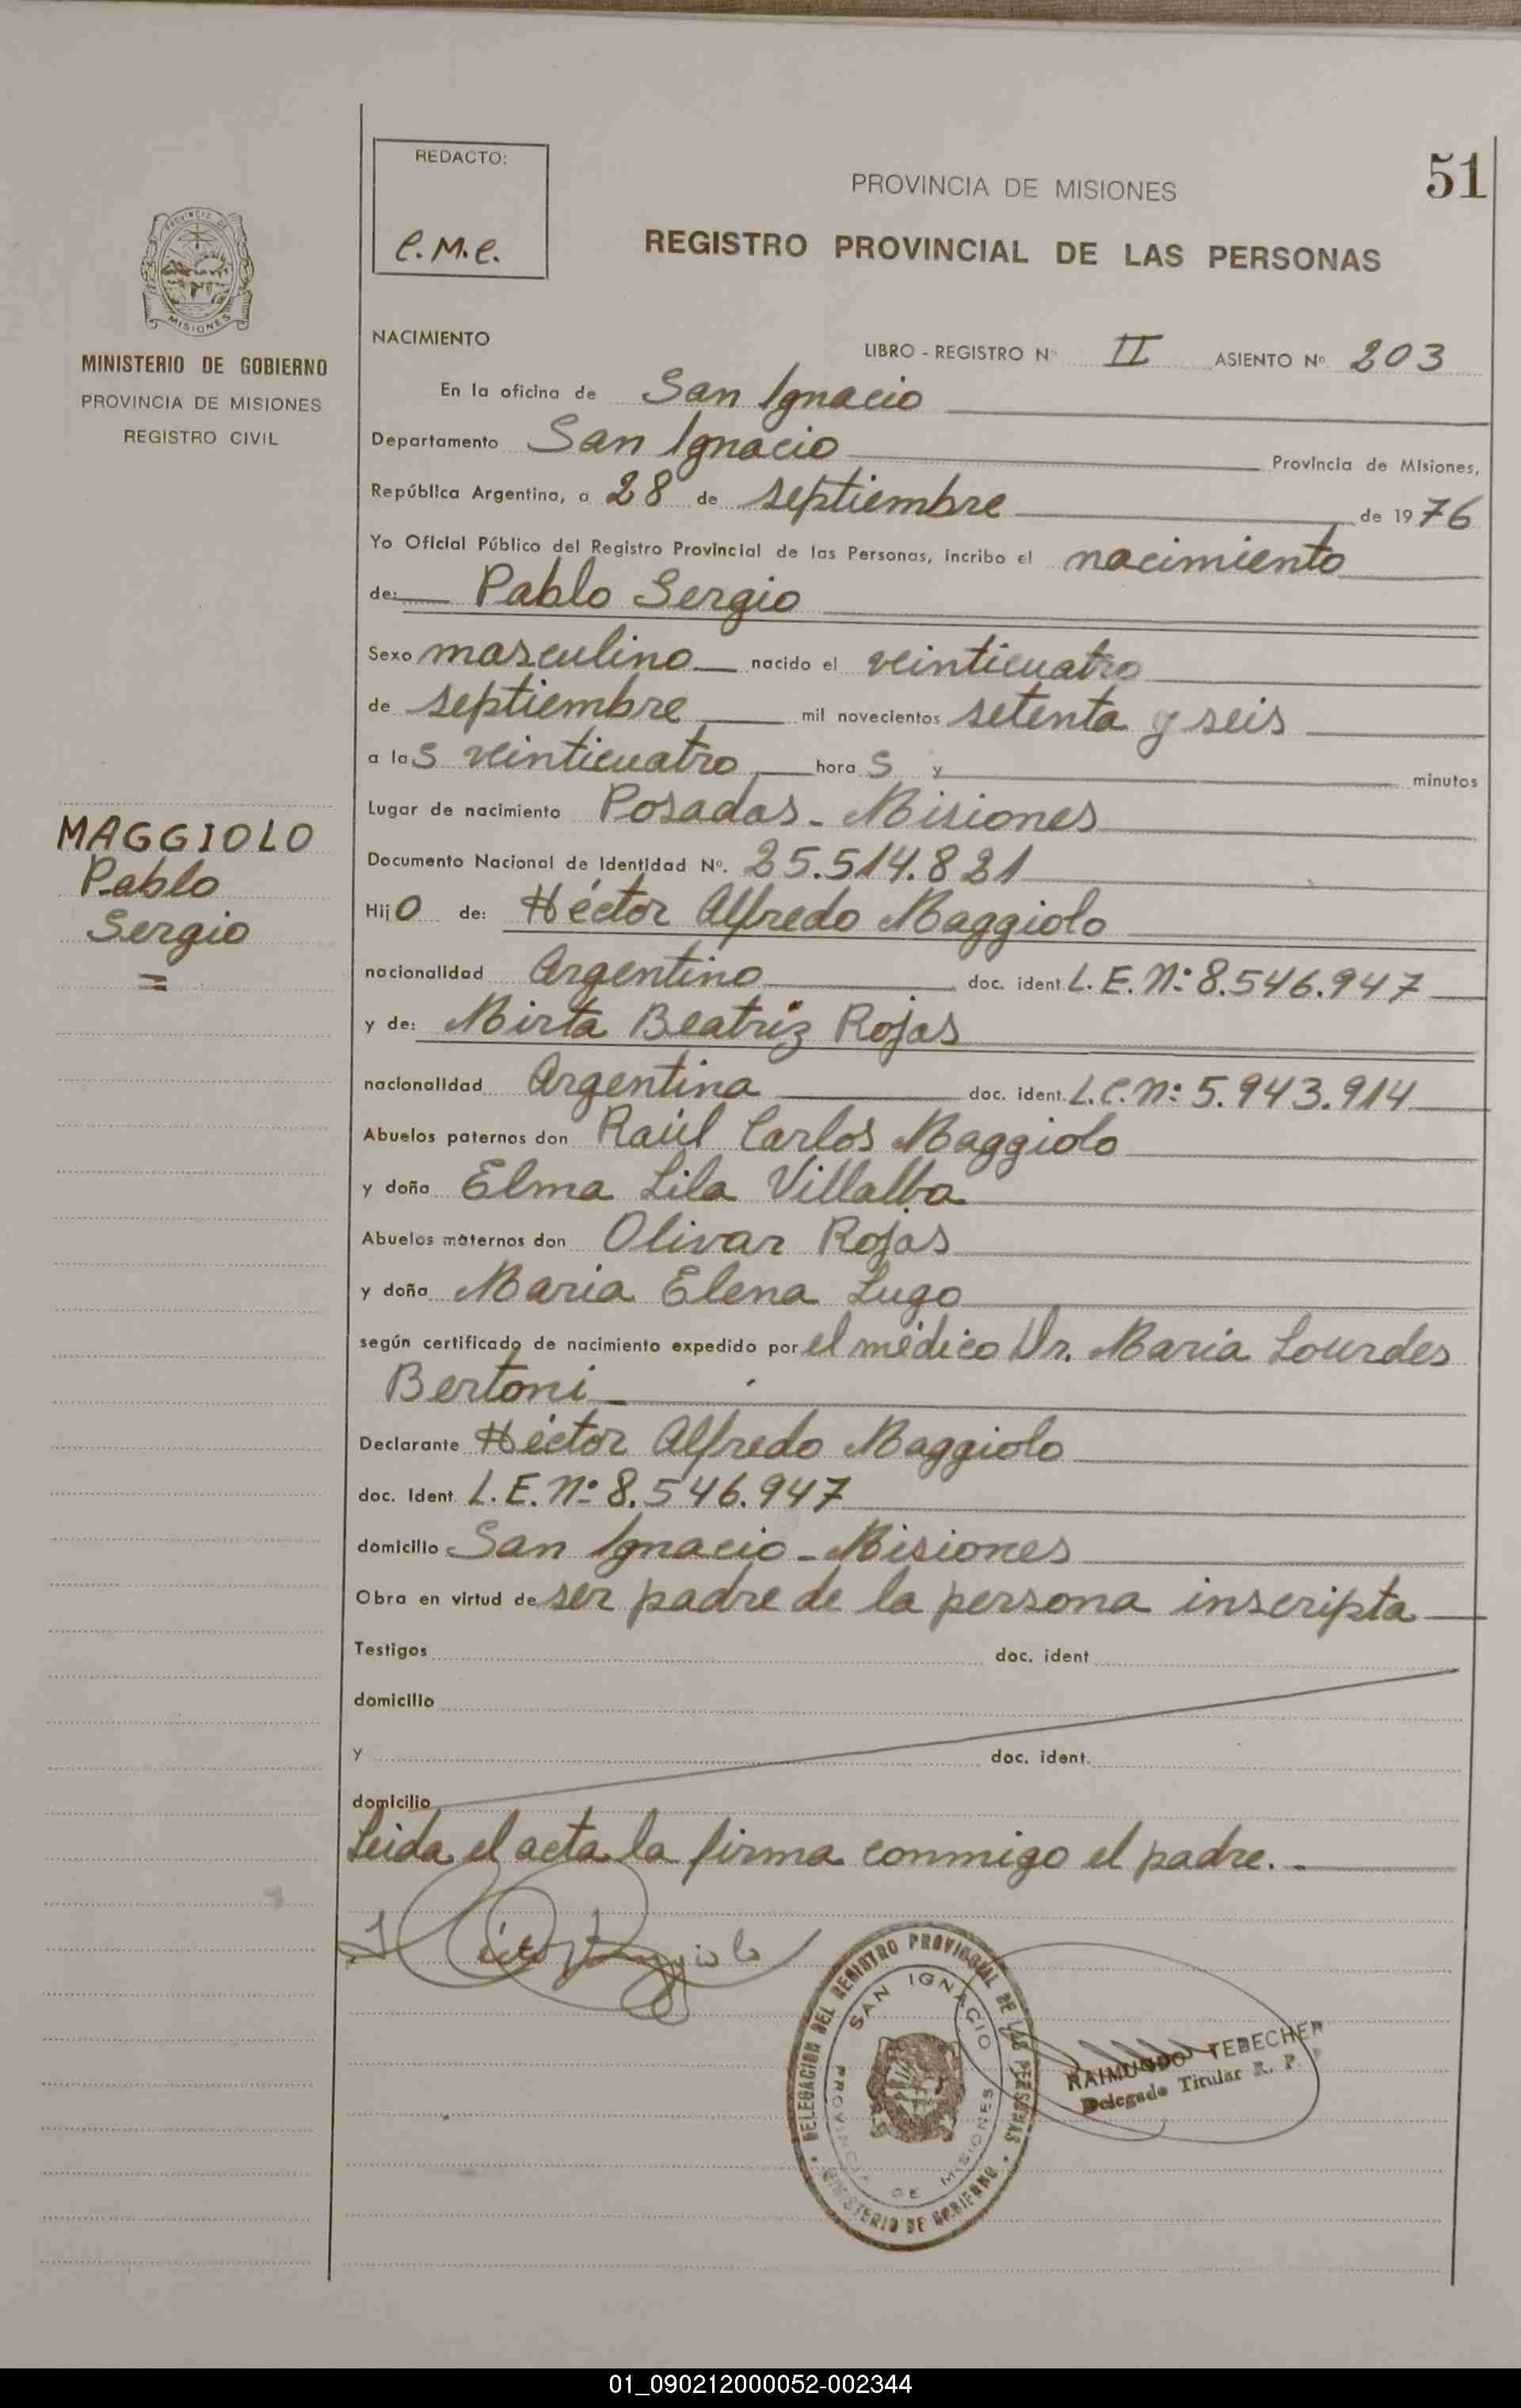 REDACTO:
C.M.C.
PROVINCIA DE MISIONES
51
REGISTRO PROVINCIAL DE LAS PERSONAS
PROVINCIA DE
MISIONES
MINISTERIO DE GOBIERNO
PROVINCIA DE MISIONES
REGISTRO CIVIL
MAGGIOLO
Pablo
Sergio
=
NACIMIENTO
LIBRO - REGISTRO Nº II ASIENTO Nº 203
En la oficina de San Ignacio
Departamento San Ignacio Provincia de Misiones,
República Argentina, a 28 de septiembre de 1976
Yo Oficial Público del Registro Provincial de las Personas, incribo el nacimiento
de: Pablo Sergio
Sexo masculino nacido el veinticuatro
de septiembre mil novecientos setenta y seis
a las veinticuatro horas y minutos
Lugar de nacimiento Posadas - Misiones
Documento Nacional de Identidad Nº. 25.514.821
Hijo de: Héctor Alfredo Maggiolo
nacionalidad Argentino doc. ident. L.E.Nº 8.546.947
y de: Mirta Beatriz Rojas
nacionalidad Argentina doc. ident. L.C.Nº 5.943.914
Abuelos paternos don Raúl Carlos Maggiolo
y doña Elma Lila Villalba
Abuelos maternos don Olivar Rojas
y doña Maria Elena Lugo
según certificado de nacimiento expedido por el médico Dr. Maria Lourdes
Bertoni
Declarante Héctor Alfredo Maggiolo
doc. Ident. L.E.Nº 8.546.947
domicilio San Ignacio - Misiones
Obra en virtud de ser padre de la persona inscripta
Testigos doc. ident
domicilio
y doc. ident.
domicilio
Leida el acta la firma conmigo el padre. -
DELEGACION DEL REGISTRO PROVINCIAL DE LAS PERSONAS
SAN IGNACIO
PROVINCIA DE MISIONES
MINISTERIO DE GOBIERNO
RAIMUNDO TEBECHER
Delegado Titular R. P.
01_090212000052-002344